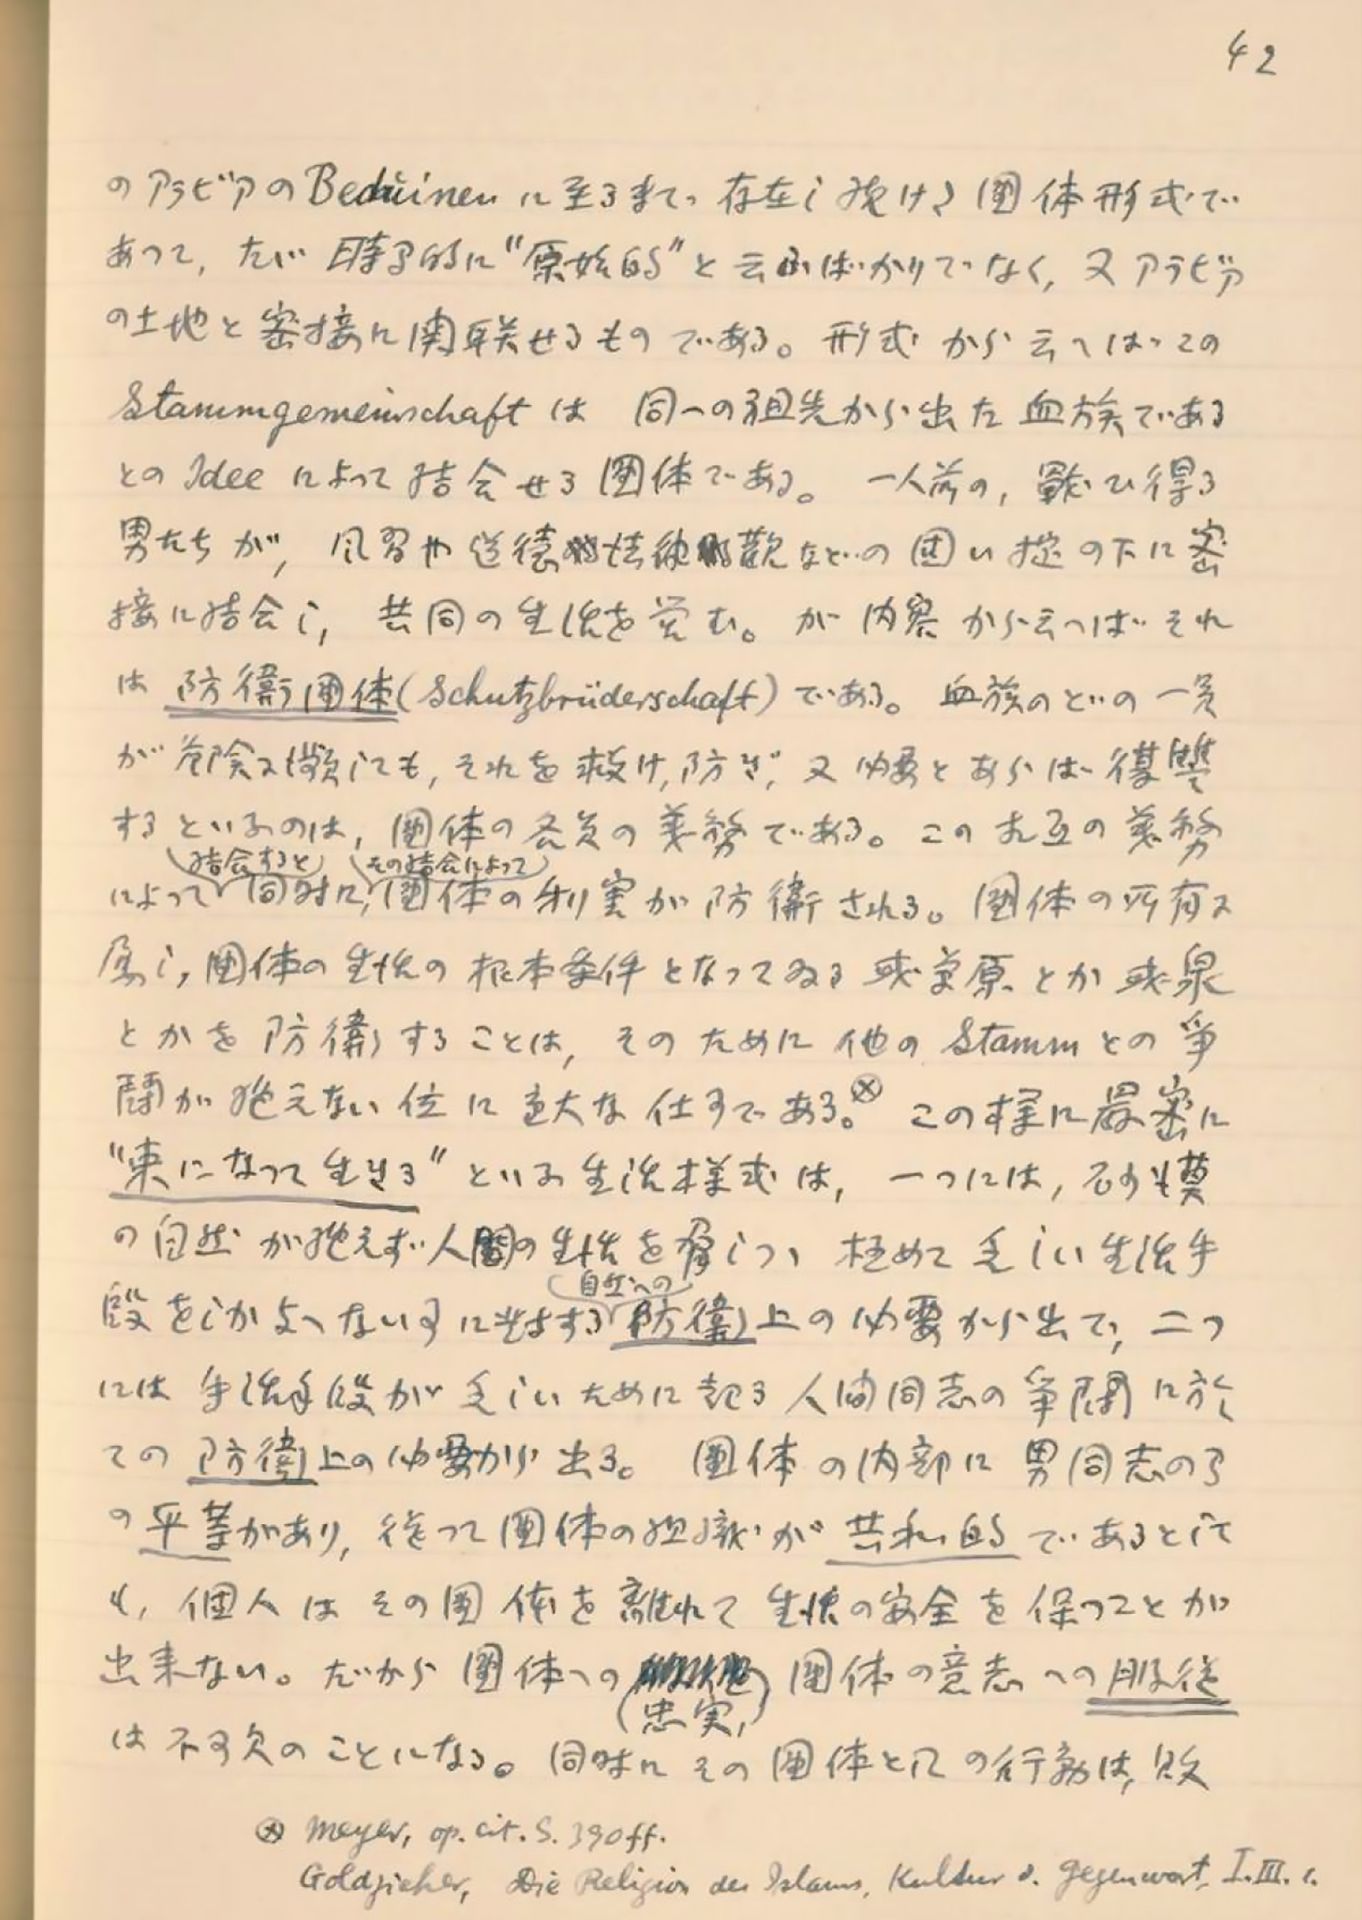 42
のアラビアの Beduinen に至るまで存在し続ける團体形式で
あって, たゞ時間的に"原始的"と云ふばかりでなく, 又アラビア
の土地と密接に関联せるものである。形式から云へばこの
Stammgemeinschaft は 同一の祖先から出た血族である
との Idee によって結合せる團体である。一人前の, 戰ひ得る
男たちが, 風習や道德 法律觀などの固い掟の下に密
接に結合し, 共同の生活を営む。が内容から云へばそれ
は 防衛團体(Schutzbrüderschaft)である。血族のどの一員
が危険に瀕しても, それを救け, 防ぎ, 又必要とあらば復讐
するといふのは, 團体の各員の義務である。このお互の義務
(結合すると) (その結合によって)
によって同時に, 團体の利害が防衛される。團体の所有に
属し, 團体の生活の根本条件となってゐる或草原とか或泉
とかを防衛することは, そのために他の Stamm との爭
鬪が絶えない位に重大な仕事である。⊗ この様に嚴密に
"束になって生きる"といふ生活様式は, 一つには, 砂漠
の自然が絶えず人間の生活を脅しつゝ極めて乏しい生活手
(自然への)
段をしか与へない事に対する防衛上の必要から出て, 二つ
には生活手段が乏しいために起る人間同志の爭鬪に於
ての防衛上の必要から出る。團体の内部に男同志の間
の平等があり, 従って團体の組織が共和的であるとして
も, 個人はその團体を離れて生活の安全を保つことが
出来ない。だから團体への 團体の意志への服従
(忠実,)
は不可欠のことになる。同時にその團体としての行動は, 敵
⊗ Meyer, op. cit. S. 390ff.
Goldziher, Die Religion des Islams, Kultur d. Gegenwart, I. III. 1.